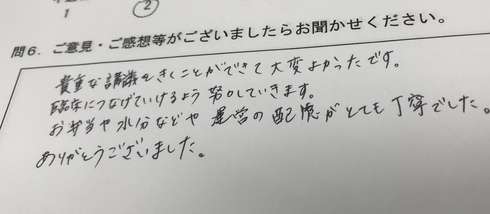 1 ②
問6. ご意見・ご感想等がございましたらお聞かせください。
貴重な講議をきくことができて大変よかったです。
臨床につなげていけるよう努力していきます。
お弁当や水分などや運営の配慮がとても丁寧でした。
ありがとうございました。